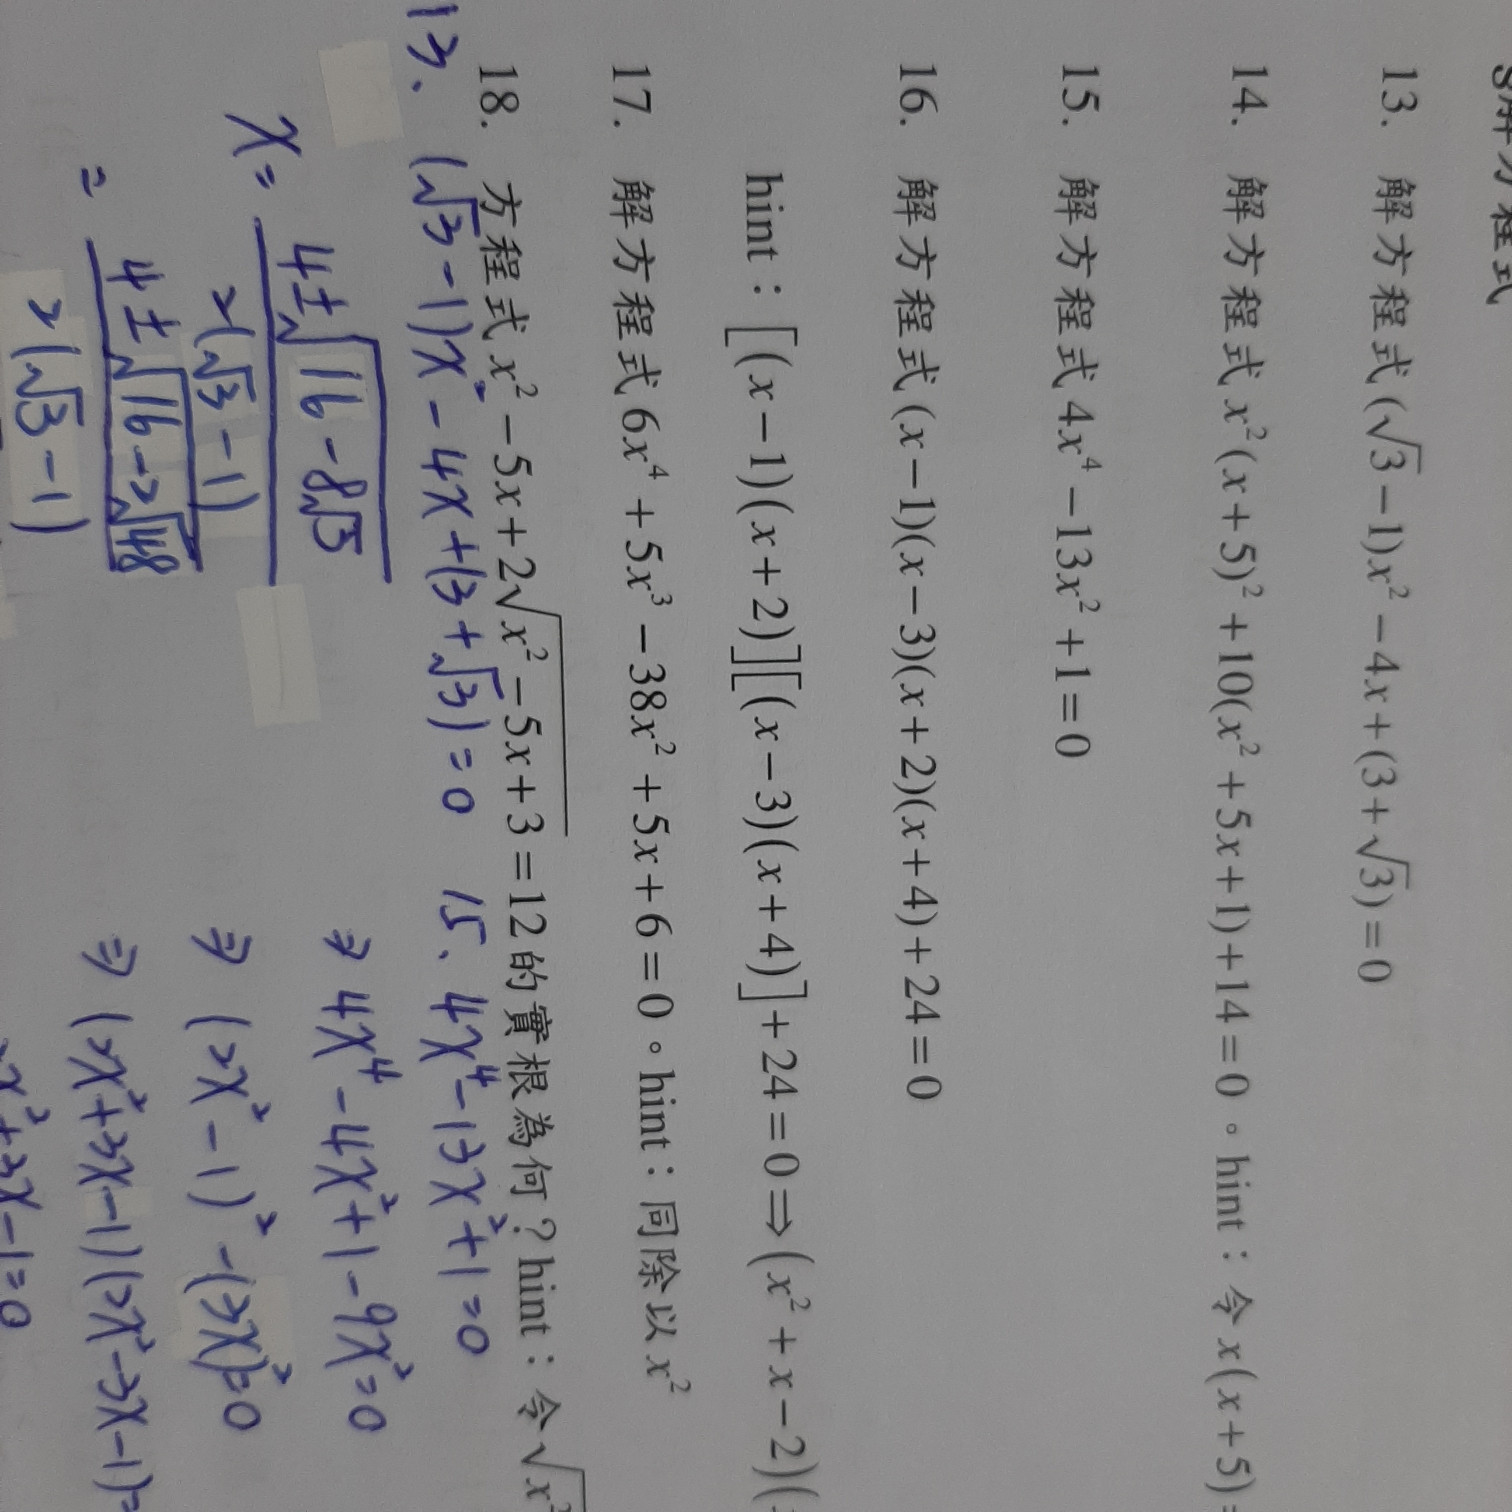 解方程式
13. 解方程式(√3−1)x²−4x+(3+√3)=0
14. 解方程式x²(x+5)²+10(x²+5x+1)+14=0。hint：令x(x+5)=
15. 解方程式4x⁴−13x²+1=0
16. 解方程式(x−1)(x−3)(x+2)(x+4)+24=0
hint：[(x−1)(x+2)][(x−3)(x+4)]+24=0⇒(x²+x−2)(
17. 解方程式6x⁴+5x³−38x²+5x+6=0。hint：同除以x²
18. 方程式x²−5x+2√(x²−5x+3)=12的實根為何？hint：令√x²
13. (√3−1)x²−4x+(3+√3)=0
x= (4±√(16−8√3))/(2(√3−1))
= (4±√(16−2√48))/(2(√3−1))
15. 4x⁴−13x²+1=0
⇒ 4x⁴−4x²+1−9x²=0
⇒ (2x²−1)²−(3x)²=0
⇒ (2x²+3x−1)(2x²−3x−1)=
x²+3x−1=0